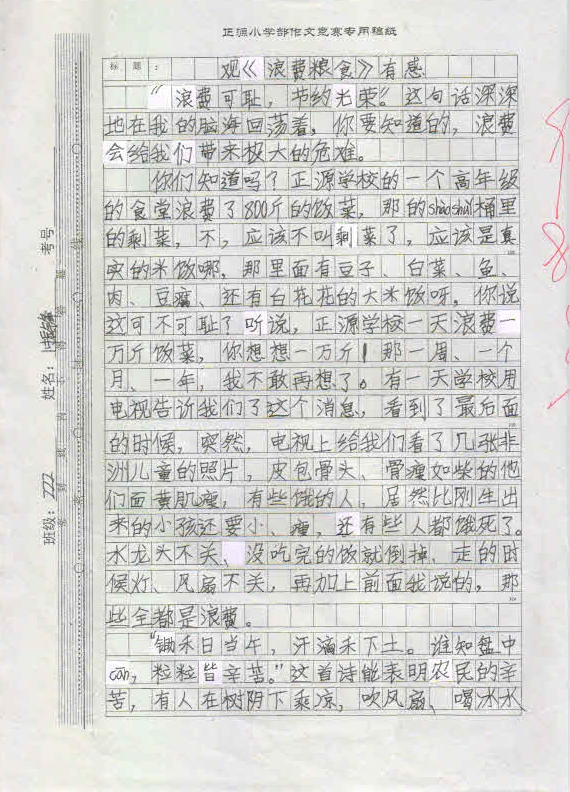 正源小学部作文竞赛专用稿纸
标题：观《浪费粮食》有感
“浪费可耻，节约光荣。”这句话深深
地在我的脑海回荡着，你要知道的，浪费
会给我们带来极大的危难。
你们知道吗？正源学校的一个高年级
的食堂浪费了800斤的饭菜，那的shāo shuǐ桶里
的剩菜，不，应该不叫剩菜了，应该是真
实的米饭哪，那里面有豆子、白菜、鱼、
肉、豆腐、还有白花花的大米饭呀，你说
这可不可耻？听说，正源学校一天浪费一
万斤饭菜，你想想一万斤！那一周、一个
月、一年，我不敢再想了。有一天学校用
电视告诉我们了这个消息，看到了最后面
的时候，突然，电视上给我们看了几张非
洲儿童的照片，皮包骨头、骨瘦如柴的他
们面黄肌瘦，有些饿的人，居然比刚生出
来的小孩还要小、瘦，还有些人都饿死了。
水龙头不关、没吃完的饭就倒掉、走的时
候灯、风扇不关，再加上前面我说的，那
些全都是浪费。
“锄禾日当午，汗滴禾下土。谁知盘中
cān，粒粒皆辛苦。”这首诗能表明农民的辛
苦，有人在树阴下乘凉，吹风扇、喝冰水
班级：222
姓名：
考号